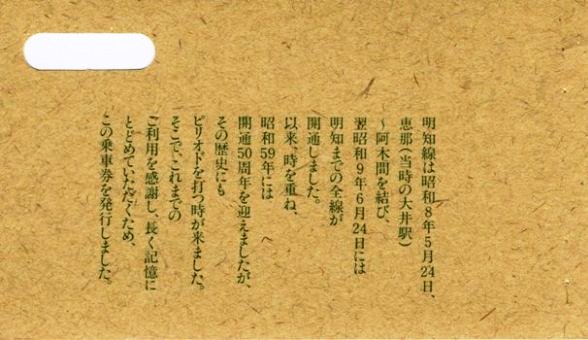 明知線は昭和8年5月24日、
恵那(当時の大井駅)
~阿木間を結び、
翌昭和9年6月24日には
明知までの全線が
開通しました。
以来、時を重ね、
昭和59年には
開通50周年を迎えましたが、
その歴史にも
ピリオドを打つ時が来ました。
そこで、これまでの
ご利用を感謝し、長く記憶に
とどめていただくため、
この乗車券を発行しました。